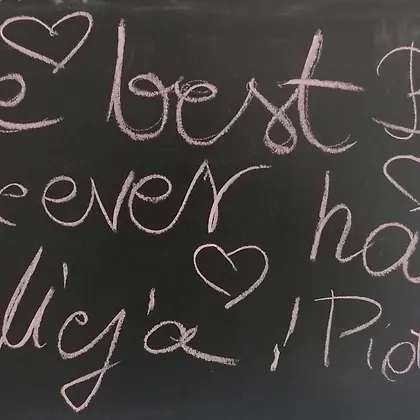 e best B
eever ha
licja i Pio